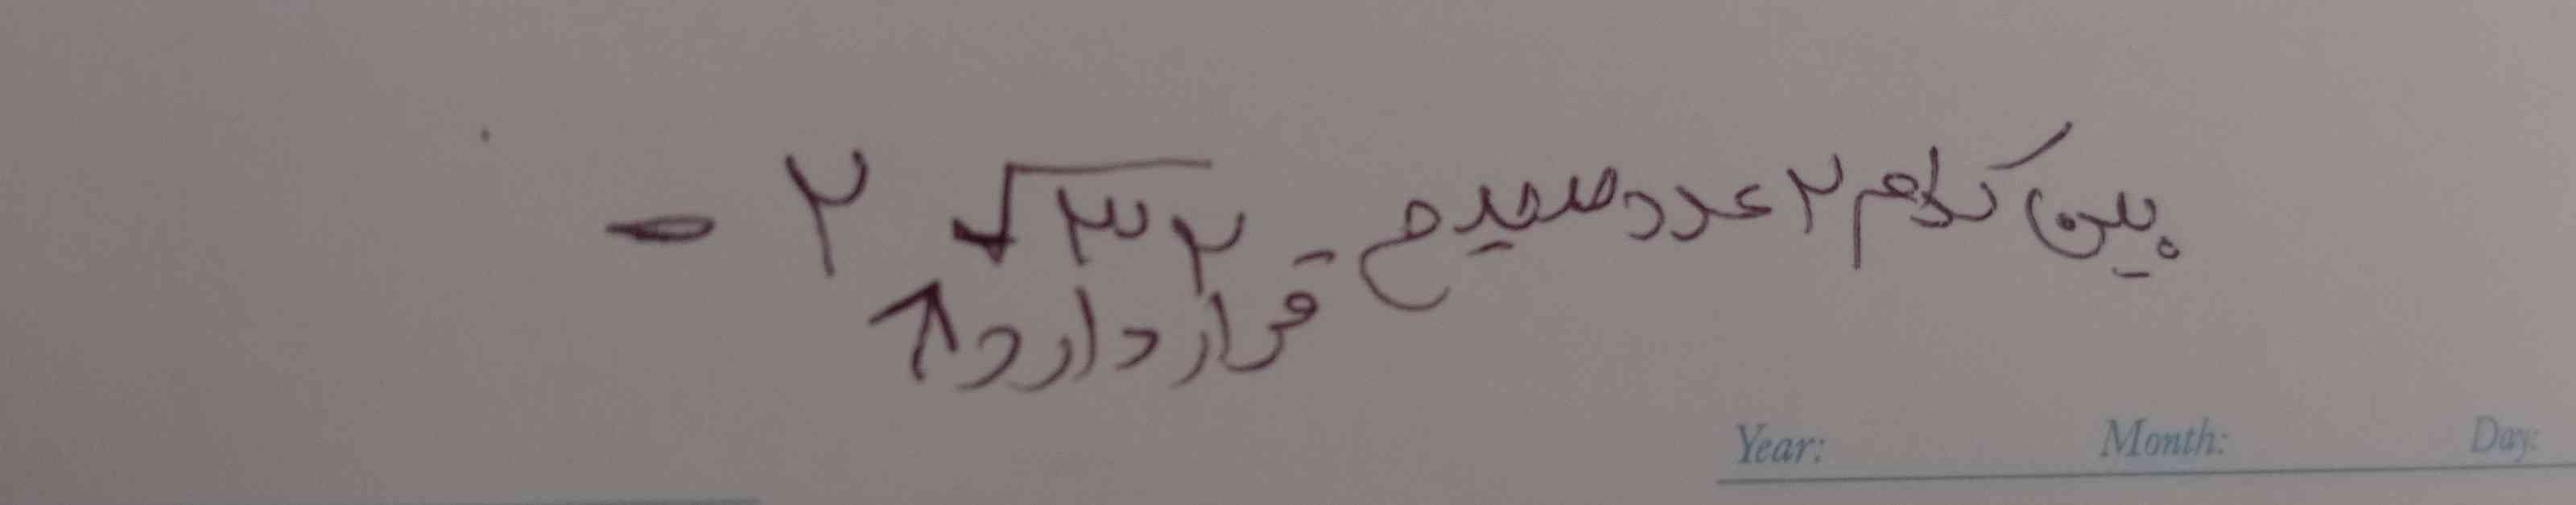 بین کدام ۲ عدد صحیح -۲√۳۲
قرار دارد↑
Year: Month: Day: